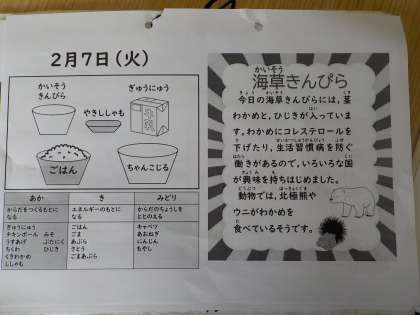 2月7日(火)
かいそう
きんぴら
ぎゅうにゅう
やきししゃも
牛乳
ごはん
ちゃんこじる
あか
き
みどり
からだをつくるもとに
なる
エネルギーのもとに
なる
からだのちょうしを
ととのえる
ぎゅうにゅう
チキンボール みそ
うすあげ ぶたにく
ちくわ ひじき
くきわかめ
ししゃも
ごはん
ごま
あぶら
さとう
ごまあぶら
キャベツ
あおねぎ
にんじん
もやし
かいそう
海草きんぴら
今日の海草きんぴらには,茎
わかめと,ひじきが入っていま
す。わかめにコレステロールを
下げたり,生活習慣病を防ぐ
働きがあるので,いろいろな国
が興味を持ちはじめました。
動物では,北極熊や
ウニがわかめを
食べているそうです。